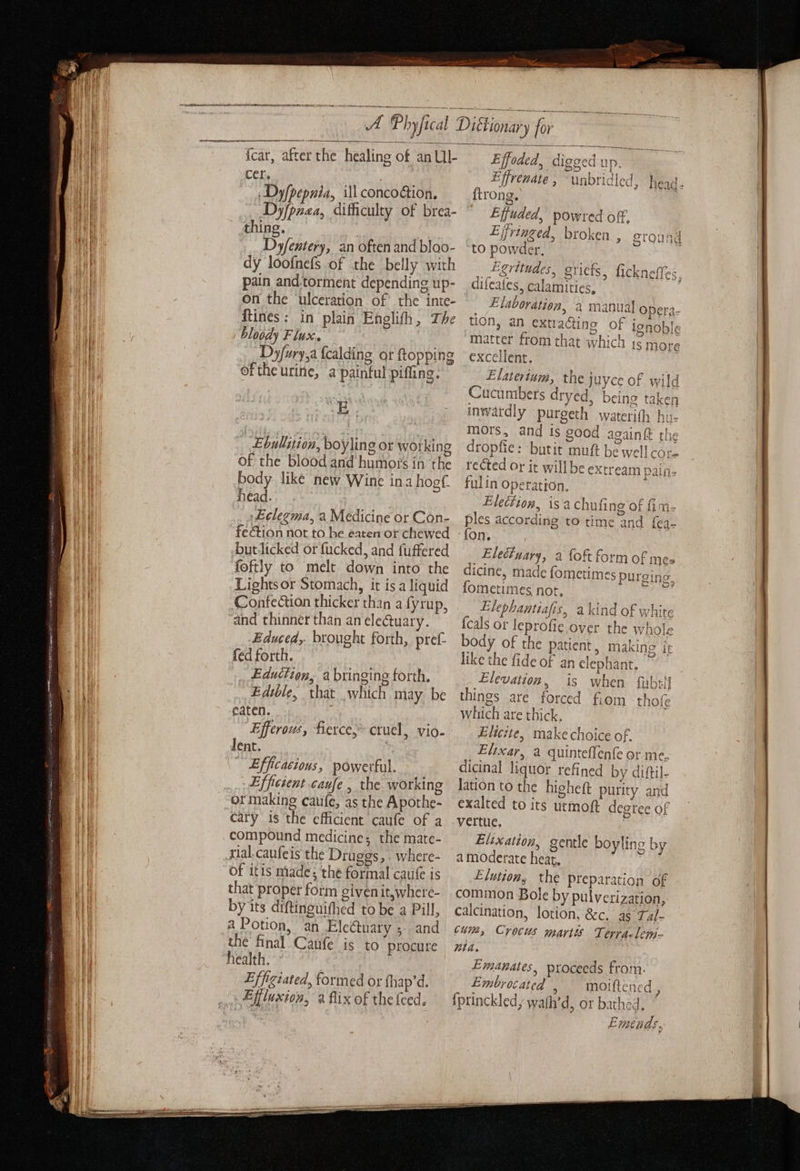 A Phyſical Dictionary for
ſcar, after the healing of an Ul-
cer.
Dyſpepnia, ill concoction.
Dyſpnæa, difficulty of brea-
thing.
Dyſentery, an often and bloo-
dy looſneſs of the belly with
pain and torment depending up-
on the ulceration of the inte-
ſtines: in plain Engliſh, The
bloody Flux.
Dyſury, a ſcalding or ſtopping
of the urine, a painful piſſing.
E
Ebullition, boyling or working
of the blood and humors in the
body like new Wine in a hogſ-
head.
Eclegma, a Medicine or Con-
fection not to be eaten or chewed
but licked or ſucked, and ſuffered
ſoftly to melt down into the
Lights or Stomach, it is a liquid
Confection thicker than a ſyrup,
and thinner than an electuary.
Educed, brought forth, preſ-
ſed forth.
Eduction, a bringing forth.
Edible, that which may be
eaten.
Efferous, fierce, cruel, vio-
lent.
Efficacious, powerful.
Efficient cauſe, the working
or making cauſe, as the Apothe-
cary is the efficient cauſe of a
compound medicine; the mate-
rial cauſe is the Druggs, where-
of it is made; the formal cauſe is
that proper form given it, where-
by its diſtinguiſhed to be a Pill,
a Potion, an Electuary; and
the final Cauſe is to procure
health.
Effigiated, formed or ſhap'd.
Effluxion, a flix of the ſeed.
Effoded, digged up.
Effrenate, unbridled, head-
ſtrong.
Effuded, powred off.
Effringed, broken, ground
to powder.
Egritudes, griefs, ſickneſſes,
diſeaſes, calamities.
Elaboration, a manual opera-
tion, an extracting of ignoble
matter from that which is more
excellent.
Elaterium, the juyce of wild
Cucumbers dryed, being taken
inwardly purgeth wateriſh hu-
mors, and is good againſt the
dropſie: but it muſt be well cor-
rected or it will be extream pain-
ful in operation.
Election, is a chuſing of ſim-
ples according to time and ſea-
ſon.
Electuary, a ſoft form of me-
dicine, made ſometimes purging,
ſometimes not.
Elephantiaſis, a kind of white
ſcals or leproſie over the whole
body of the patient, making it
like the ſide of an elephant.
Elevation, is when ſubtil
things are forced from thoſe
which are thick.
Elicite, make choice of.
Elixar, a quinteſſenſe or me-
dicinal liquor refined by diſtil-
lation to the higheſt purity and
exalted to its utmoſt degree of
vertue.
Elixation, gentle boyling by
a moderate heat.
Elution, the preparation of
common Bole by pulverization,
calcination, lotion, &c. as Tal-
cum, Crocus martis Terra-lem-
nia.
Emanates, proceeds from.
Embrocated, moiſtened,
ſprinckled, waſh'd, or bathed.
Emends,